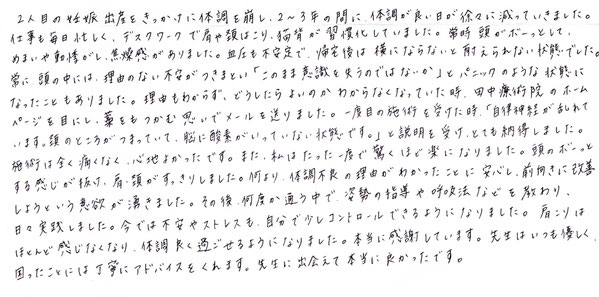 2人目の妊娠出産をきっかけに体調を崩し、2~3年の間に、体調が良い日が徐々に減っていきました。
仕事も毎日忙しく、デスクワークで肩や頚はこり、猫背が習慣化していました。常時頭がボーッとして、
めまいや動悸がし、焦燥感がありました。血圧も不安定で、帰宅後は横にならないと耐えられない状態でした。
常に頭の中には、理由のない不安がつきまとい「このまま意識を失うのではないか」とパニックのような状態に
なったこともありました。理由もわからず、どうしたらよいのかわからなくなっていた時、田中療術院のホーム
ページを目にし、藁をもつかむ思いでメールを送りました。一度目の施術を受けた時、「自律神経が乱れて
います。頭のところがつまっていて、脳に酸素がいっていない状態です。」と説明を受け、とても納得しました。
施術は全く痛くなく、心地よかったです。また、私はたった一度で驚くほど楽になりました。頭のボーッと
する感じが抜け、肩・頚がすっきりしました。何より、体調不良の理由がわかったことに安心し、前向きに改善
しようという意欲が湧きました。その後、何度か通う中で、姿勢の指導や呼吸法などを教わり、
日々実践しました。今では不安やストレスも、自分で少しコントロールできるようになりました。肩こりは
ほとんど感じなくなり、体調良く過ごせるようになりました。本当に感謝しています。先生はいつも優しく、
困ったことには丁寧にアドバイスをくれます。先生に出会えて本当に良かったです。